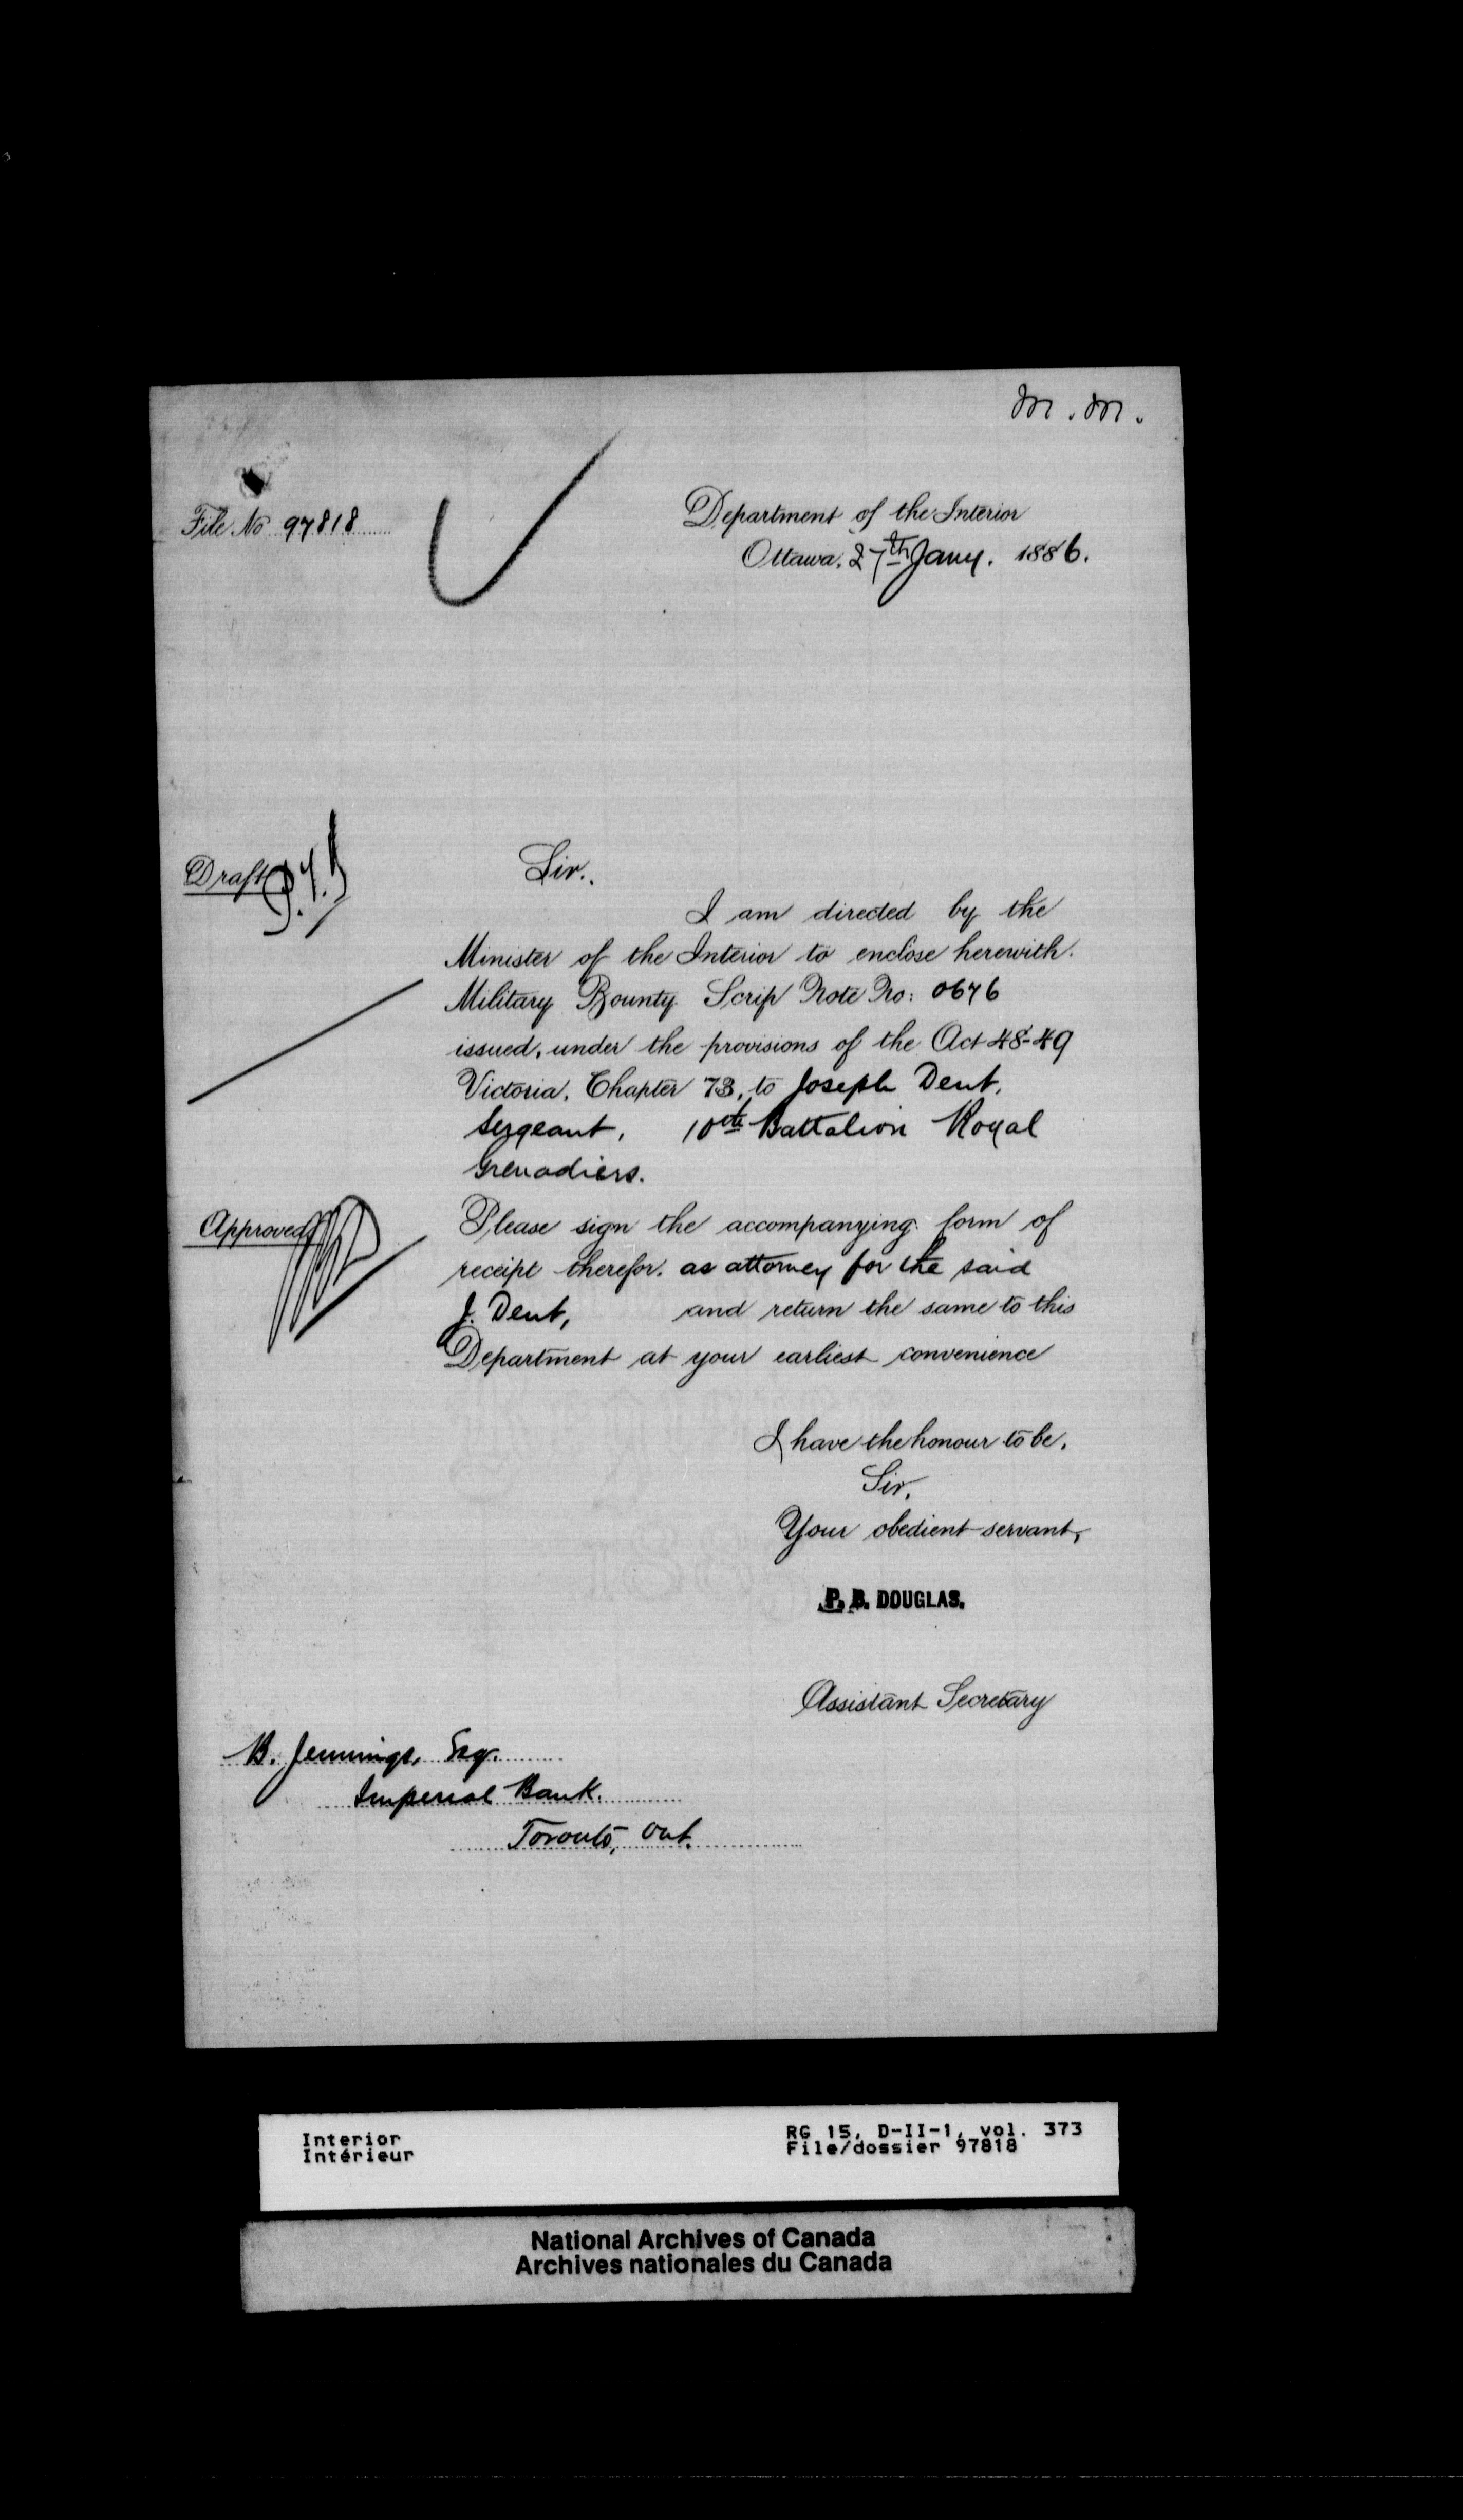 M.M.
File No 97818
Department of the Interior
Ottawa, 27th Jany. 1886.
Draft
Sir,
I am directed by the
Minister of the Interior to enclose herewith
Military Bounty Scrip Note No: 0676
issued, under the provisions of the Act 48-49
Victoria, Chapter 73, to Joseph Dent,
Sergeant, 10th Battalion Royal
Grenadiers.
Approved
Please sign the accompanying form of
receipt therefor, as attorney for the said
J. Dent, and return the same to this
Department at your earliest convenience
I have the honour to be,
Sir,
Your obedient servant,
P. B. DOUGLAS.
Assistant Secretary
B. Jennings, Esq.
Imperial Bank.
Toronto, Ont.
Interior
Intérieur
RG 15, D-II-1, vol. 373
File/dossier 97818
National Archives of Canada
Archives nationales du Canada